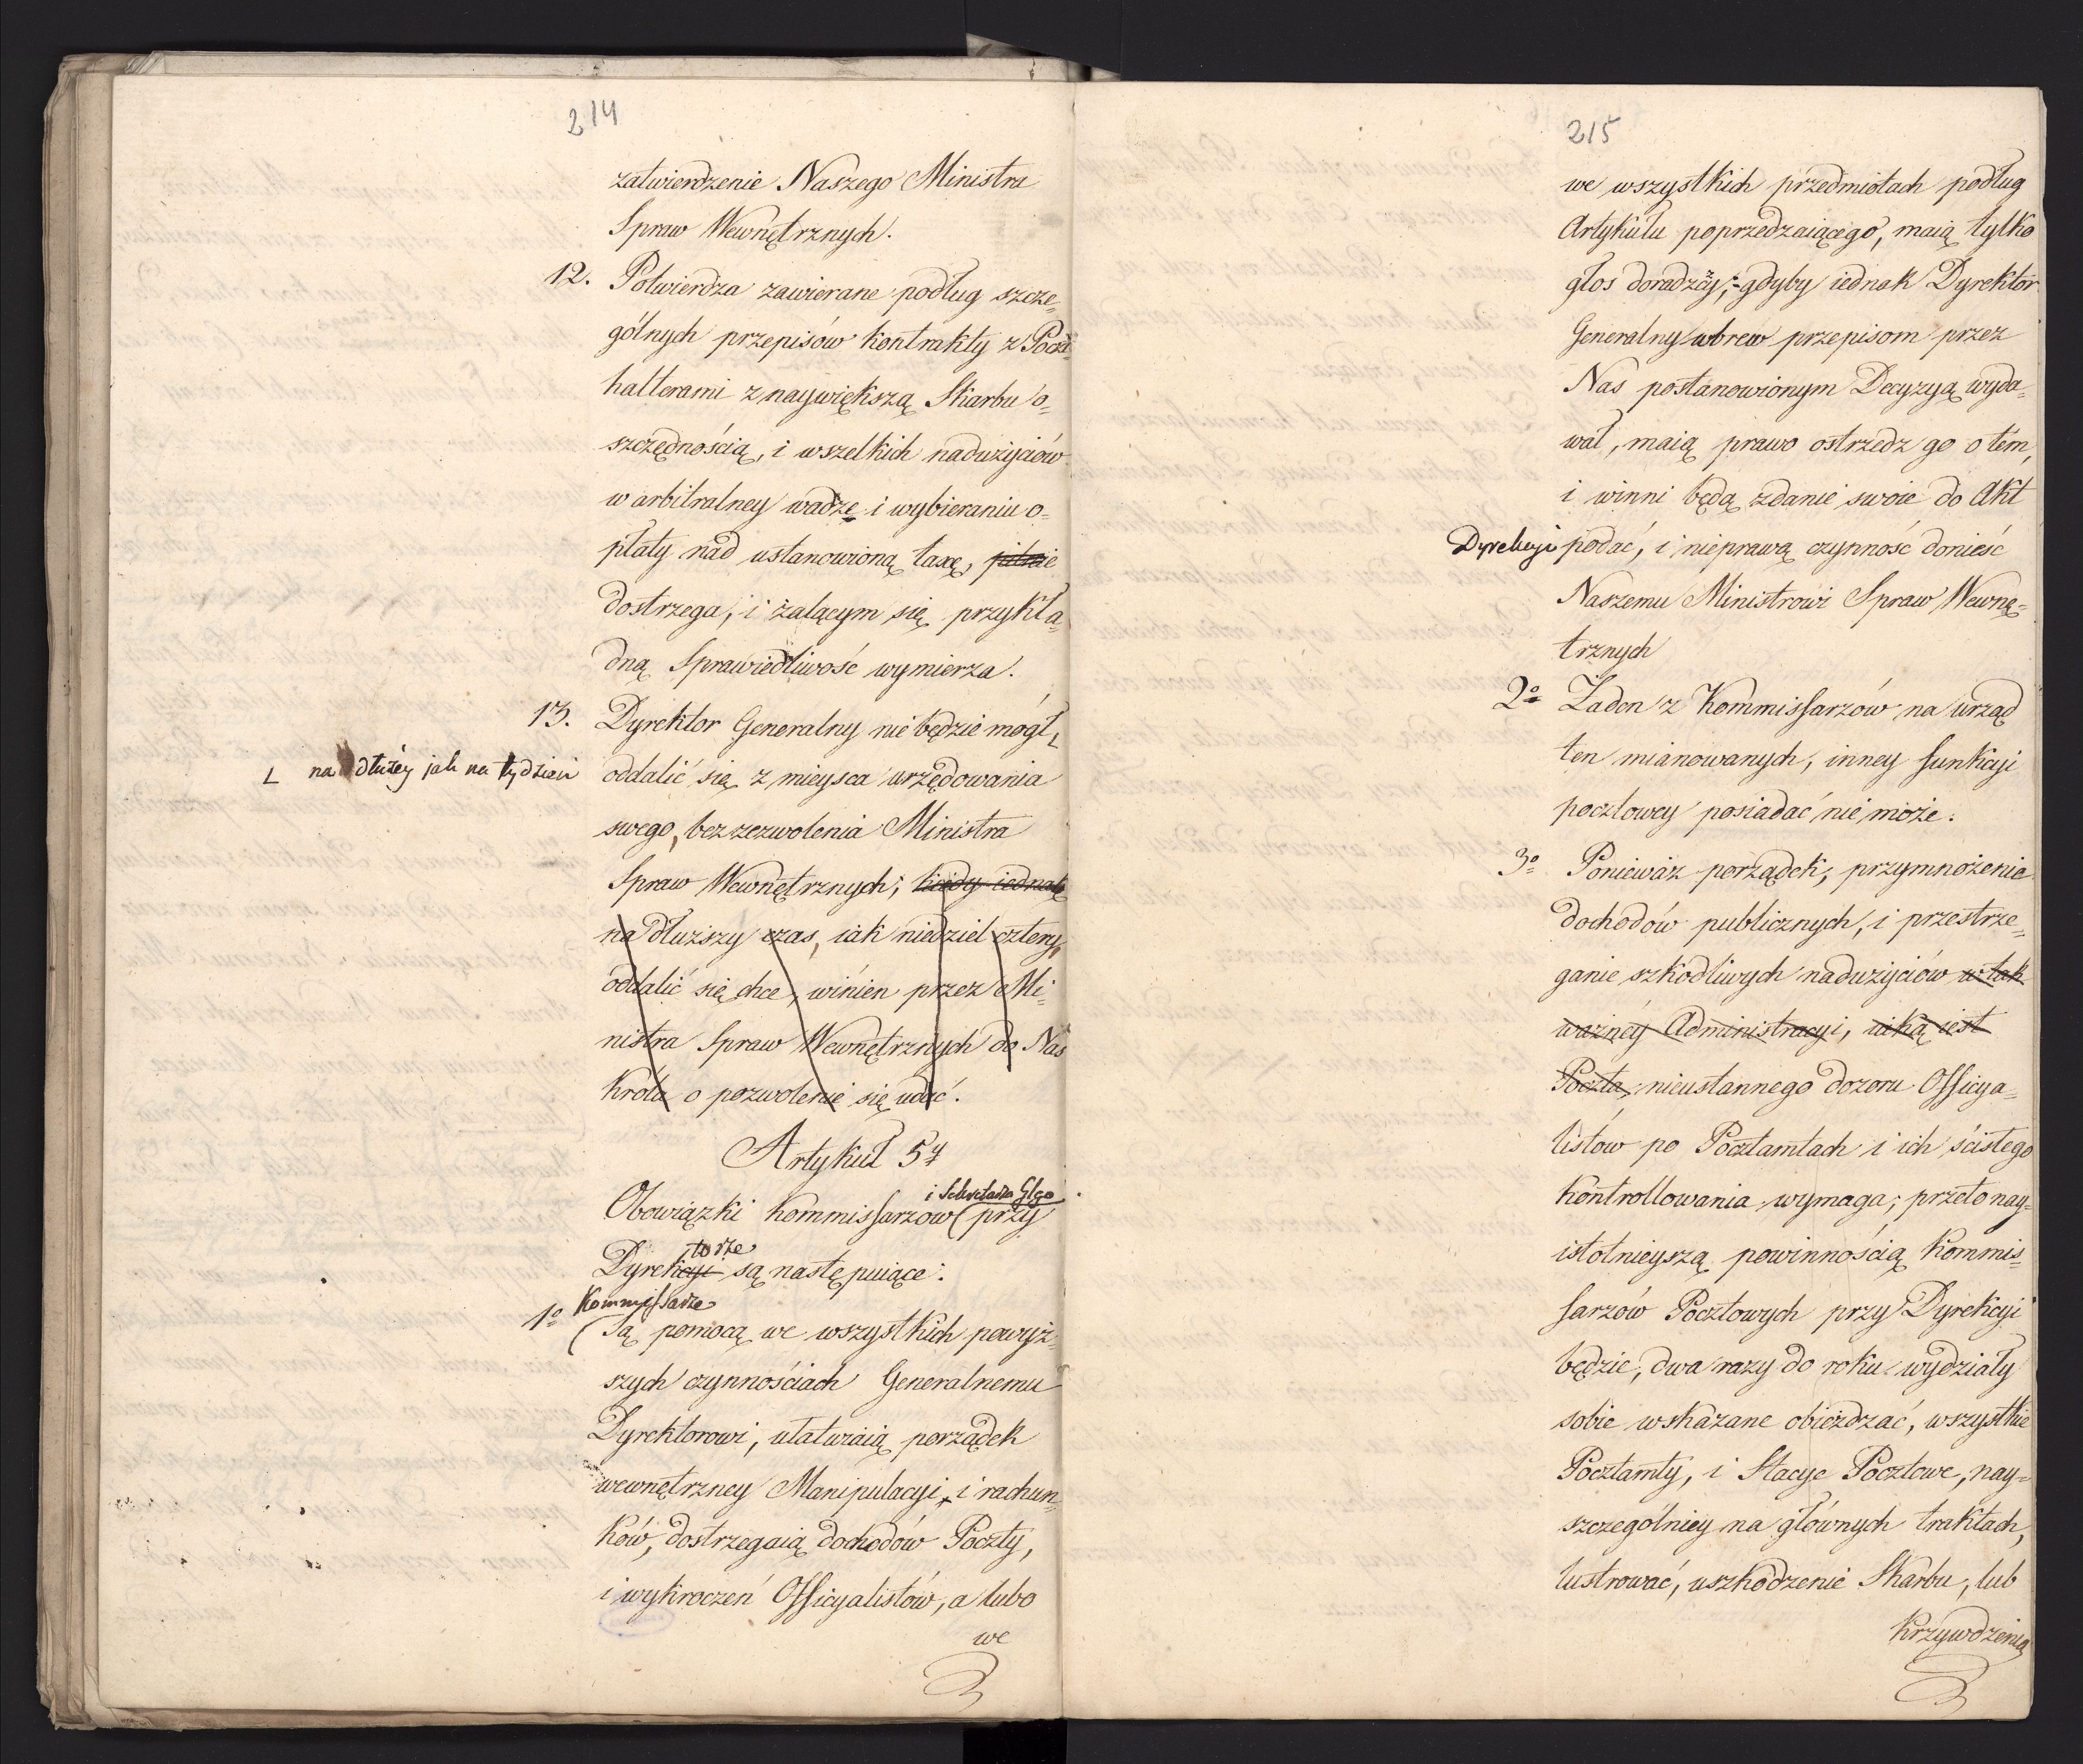 214
zatwierdzenie Naszego Ministra
Spraw Wewnętrznych.
12. Potwierdza zawierane podług szcze=
gólnych przepisów kontrakty z Poczt=
halterami z naywiększą Skarbu o=
szczędnością, i wszelkich nadużyciów
w arbitralney wadze i wybieraniu o=
płaty nad ustanowioną taxę, pilnie
dostrzega, i żalącym się przykła=
dną Sprawiedliwość wymierza.
13. Dyrektor Generalny nie będzie mógł L
L na dłużéy jak na tydzień
oddalić się z mieysca urzędowania
swego, bez zezwolenia Ministra
Spraw Wewnętrznych; kiedy iednak
na dłuższy czas, iak niedziel cztery,
oddalić się chce, winien przez Mi=
nistra Spraw Wewnętrznych do Nas
Króla o pozwolenie się udać.
Artykuł 54
i Sekretarza Glgo
Obowiązki Kommissarzów ( przy
torze
Dyrekcyi są następuiące:
Kommissarze
1o ( Są pomocą we wszystkich powyż=
szych czynnościach Generalnemu
Dyrektorowi, ułatwiaią porządek
wewnętrzney Manipulacyi, i rachun=
ków, dostrzegaią dochodów Poczty,
i wykroczeń Officyalistów, a lubo
we
215
we wszystkich przedmiotach podług
Artykułu poprzedzaiącego, maią tylko
głos doradzczy; gdyby iednak Dyrektor
Generalny wbrew przepisom przez
Nas postanowionym Decyzyą wyda=
wał, maią prawo ostrzedz go o tém,
i winni będą zdanie swoie do Akt
Dyrekcyi podać, i nieprawą czynność donieść
Naszemu Ministrowi Spraw Wewnę=
trznych
2o Żaden z Kommissarzów na urząd
ten mianowanych, inney funkcyi
pocztowey posiadać nie może.
3o Ponieważ porządek, przymnożenie
dochodów publicznych, i przestrze=
ganie szkodliwych nadużyciów w tak
ważnéy Administracyi, iaką iest
Poczta, nieustannego dozoru Officya=
listów po Pocztamtach i ich ścisłego
kontrollowania wymaga; przeto nay=
istotnieyszą powinnością Kommis=
sarzów Pocztowych przy Dyrekcyi
będzie, dwa razy do roku wydziały
sobie wskazane obieżdzać, wszystkie
Pocztamty, i Stacye Pocztowe, nay=
szczególniey na głównych traktach,
lustrować, uszkodzenie Skarbu, lub
krzywdzenia